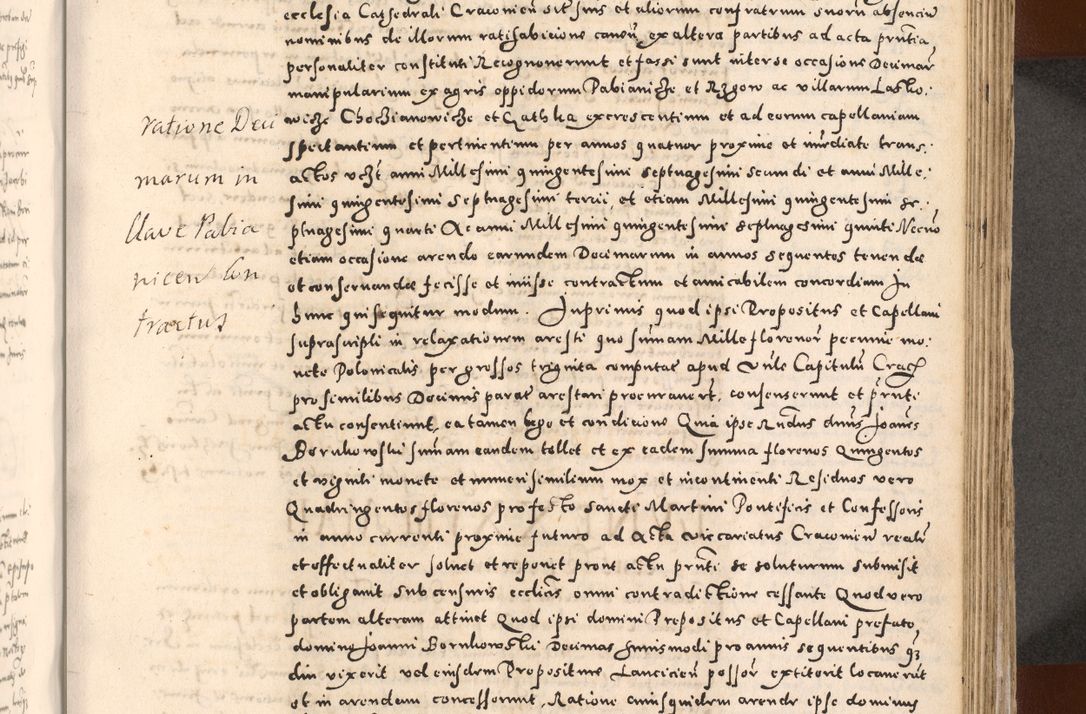 ecclesia Cathedrali Cracovien sit suis et aliorum confratrum suorũ absenciũ
nominibus de illorum ratihabicione caveñ ex altera partibus ad acta pñtia
personaliter constituti Recognoverunt et fassi sunt inter se occasione Decimar
manipularium ex agris oppidorum Pabianicze et Rzgow ac villarum Lasko,
wicze Chochianowicze et Gathka excrescentium et ad eorum capellaniam
spectantium et pertinentium per annos quatuor proxime et imediate trans,
actos vczt anni Millesimi quingentesimi septuagesimi secundi et anni Mille,
simi quingentesimi septuagesimi tercii, et etiam Millesimi quingentesimi se,
ptuagesimi quarti Ac anni Millesimi quingentesimi septuagesimi quinti Necnõ
etiam occasione arende earundem Decimarum in annos sequentes tenendæ
et conservandæ fecisse et iniisse contractum et amicabilem concordiam In
hunc qui sequitur modum. Inprimis quod ipsi Propositus et Capellani
suprascripti in relaxationem aresti quo sumam Mille florenor pecunie mo,
nete Polonicalis per grossos triginta computat apud Vnle Capitulũ Crac
pro similibus Decimis parat arestari procuraverũt, consenserunt et pñti
actu consentiunt, ea tamen lege et condicione Quia ipse Rndus dnus Joanes
Bornkowski sumam eandem tollet et ex eadem summa florenos Quingentos
et viginti monete et numeri similium mox et incontinenti Residuos vero
Quadringentos florenos pro festo sancti Martini Pontificis et Confessoris
in anno currenti proxime futuro ad Acta vicecariatus Cracovien realr
et effectualiter solvet et reponet prout actu pñti se soluturum submisit
et obligavit sub censuris ecclicis omni contradictione cessante Quod vero
partem alteram attinet Quod ipsi domini Prepositus et Capellani prefato
domino Joanni Bornkowski Decimas huiusmodi pro annis sequentibus qz
diu vixerit vel eiusdem Propositure Lancicien possor extiterit locaverũt
et in arendam concesserunt, Ratione cuiusquidem arende ipse dominus
ratione Deci
marum in
clave Pabia
nicen Con
tractus